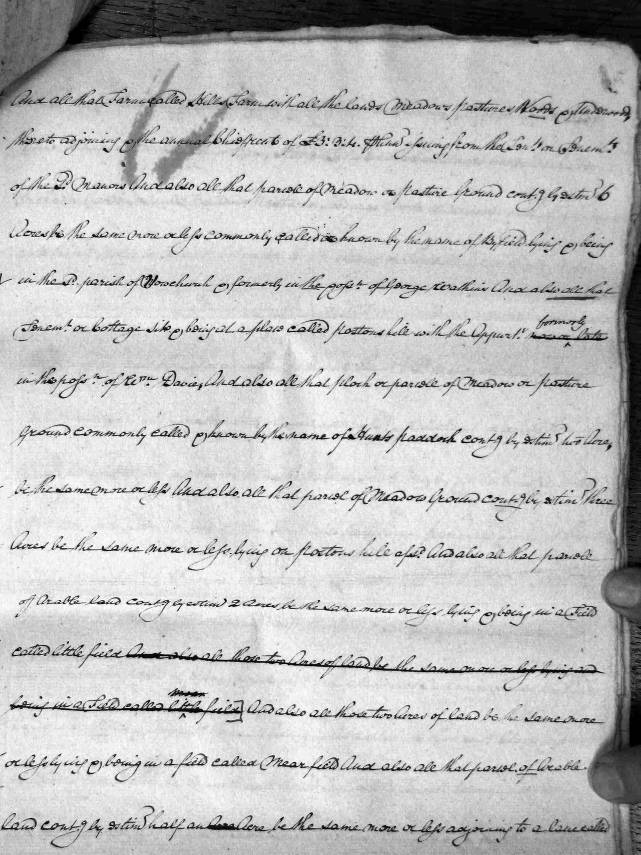 And all that Farm called Hills Farm with all the lands Meadows pastures Woods & Underwoods
thereto adjoining & the annual Chief rent of £3: 3: 4. Annu issuing from the Ten.ts or Tenem.ts
of the sd. Manors And also all that parcel of Meadow or pasture Ground cont.g by estim.n 6
Acres be the same more or less commonly called or known by the name of Byfield lying & being
in the sd. parish of & formerly in the poss.n of George Watkins And also all that
Tenem.t or Cottage site & being at a place called portons hill with the Appurt.s now or formerly late
in the poss.n of Davies, And also all that plock or parcel of Meadow or pasture
Ground commonly called & known by the name of Hunts paddock cont.g by estim.n two Acres,
be the same more or less And also all that parcel of Meadow Ground cont.g by estim.n three
Acres be the same more or less, lying on portons hill afsd. And also all that parcel
of Arable Land cont.g by estim 2 acres be the same more or less lying & being in a Field
called little field And also all those two Acres of land be the same more or less lying and
being in a Field called little mear field, And also all those two Acres of land be the same more
or less lying & being in a field called Mear field And also all that parcel of Arable
land cont.g by estim.n half an Acre be the same more or less adjoining to a lane called